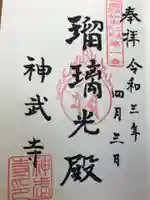 奉拝
令和三年
四月三日
瑠璃光殿
神武寺